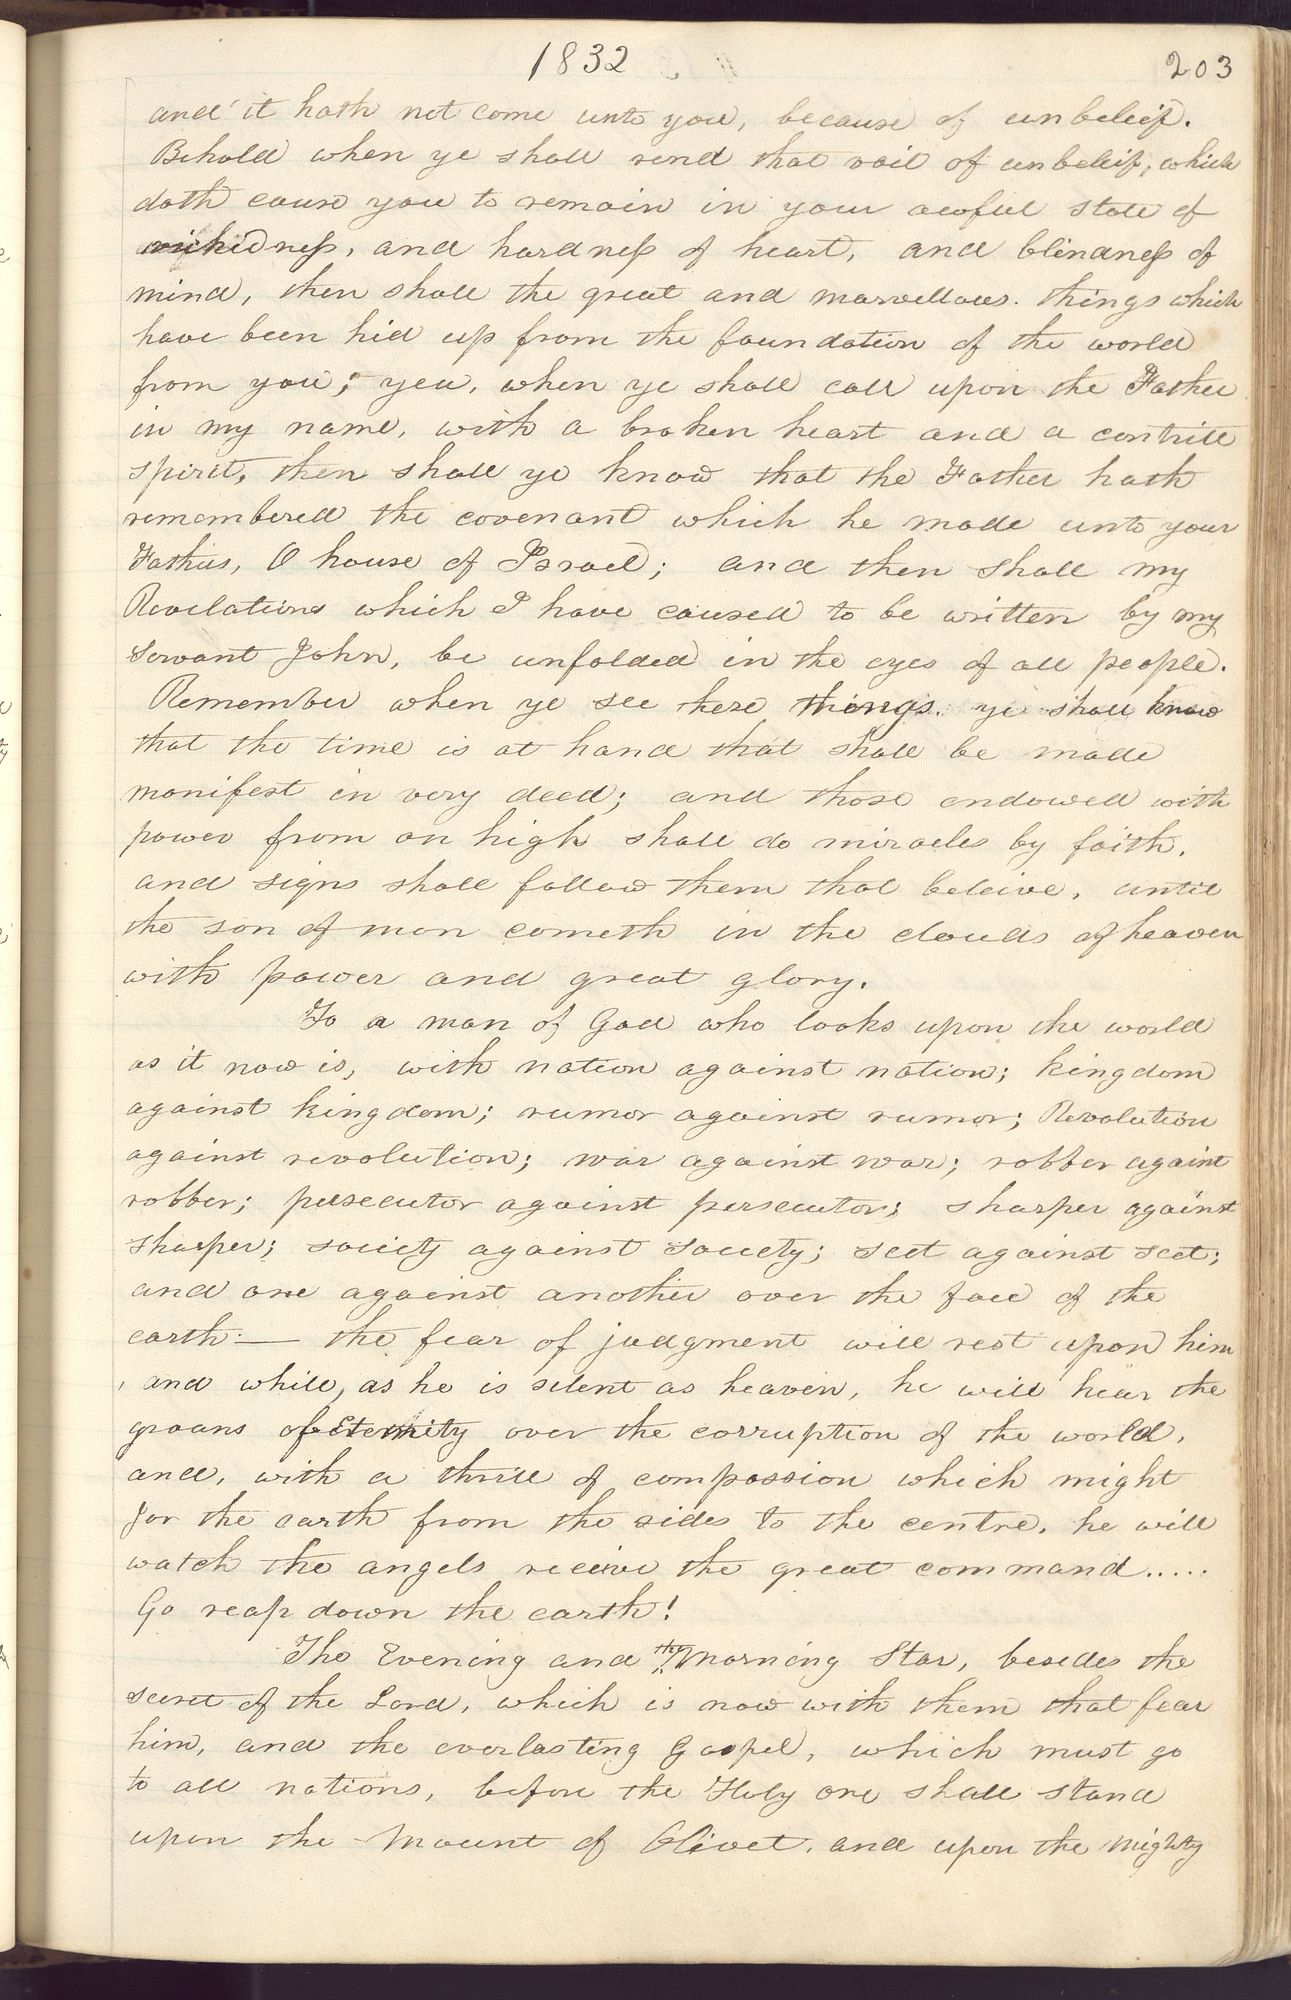 1832
203
and it hath not come unto you, because of unbeleif.
Behold when ye shall rend that vail of unbeleif, which
doth cause you to remain in your awful state of
wickedness, and hardness of heart, and blindness of
mind, then shall the great and marvellous things which
have been hid up from the foundation of the world
from you; yea, when ye shall call upon the Father
in my name, with a broken heart and a contrite
spirit, then shall ye know that the Father hath
remembered the covenant which he made unto your
Fathers, O house of Israel; and then shall my
Revelations which I have caused to be written by my
servant John, be unfolded in the eyes of all people.
Remember when ye see these things, ye shall know
that the time is at hand that shall be made
manifest in very deed; and those endowed with
power from on high shall do miracles by faith,
and signs shall follow them that beleive, until
the son of man cometh in the clouds of heaven
with power and great glory.
To a man of God who looks upon the world
as it now is, with nation against nation; kingdom
against kingdom; rumor against rumor; Revolution
against revolution; war against war; robber againt
robber; persecutor against persecutor; sharper against
sharper; society against society; sect against sect;
and one against another over the face of the
earth:— the fear of judgment will rest upon him
, and while, as he is silent as heaven, he will hear the
groans of Eternity over the corruption of the world,
and, with a thrill of compassion which might
jar the earth from the sides to the centre, he will
watch the angels receive the great command.....
Go reap down the earth!
The Evening and the Morning Star, besides the
secret of the Lord, which is now with them that fear
him, and the everlasting Gospel, which must go
to all nations, before the Holy one shall stand
upon the Mount of Olivet, and upon the mighty